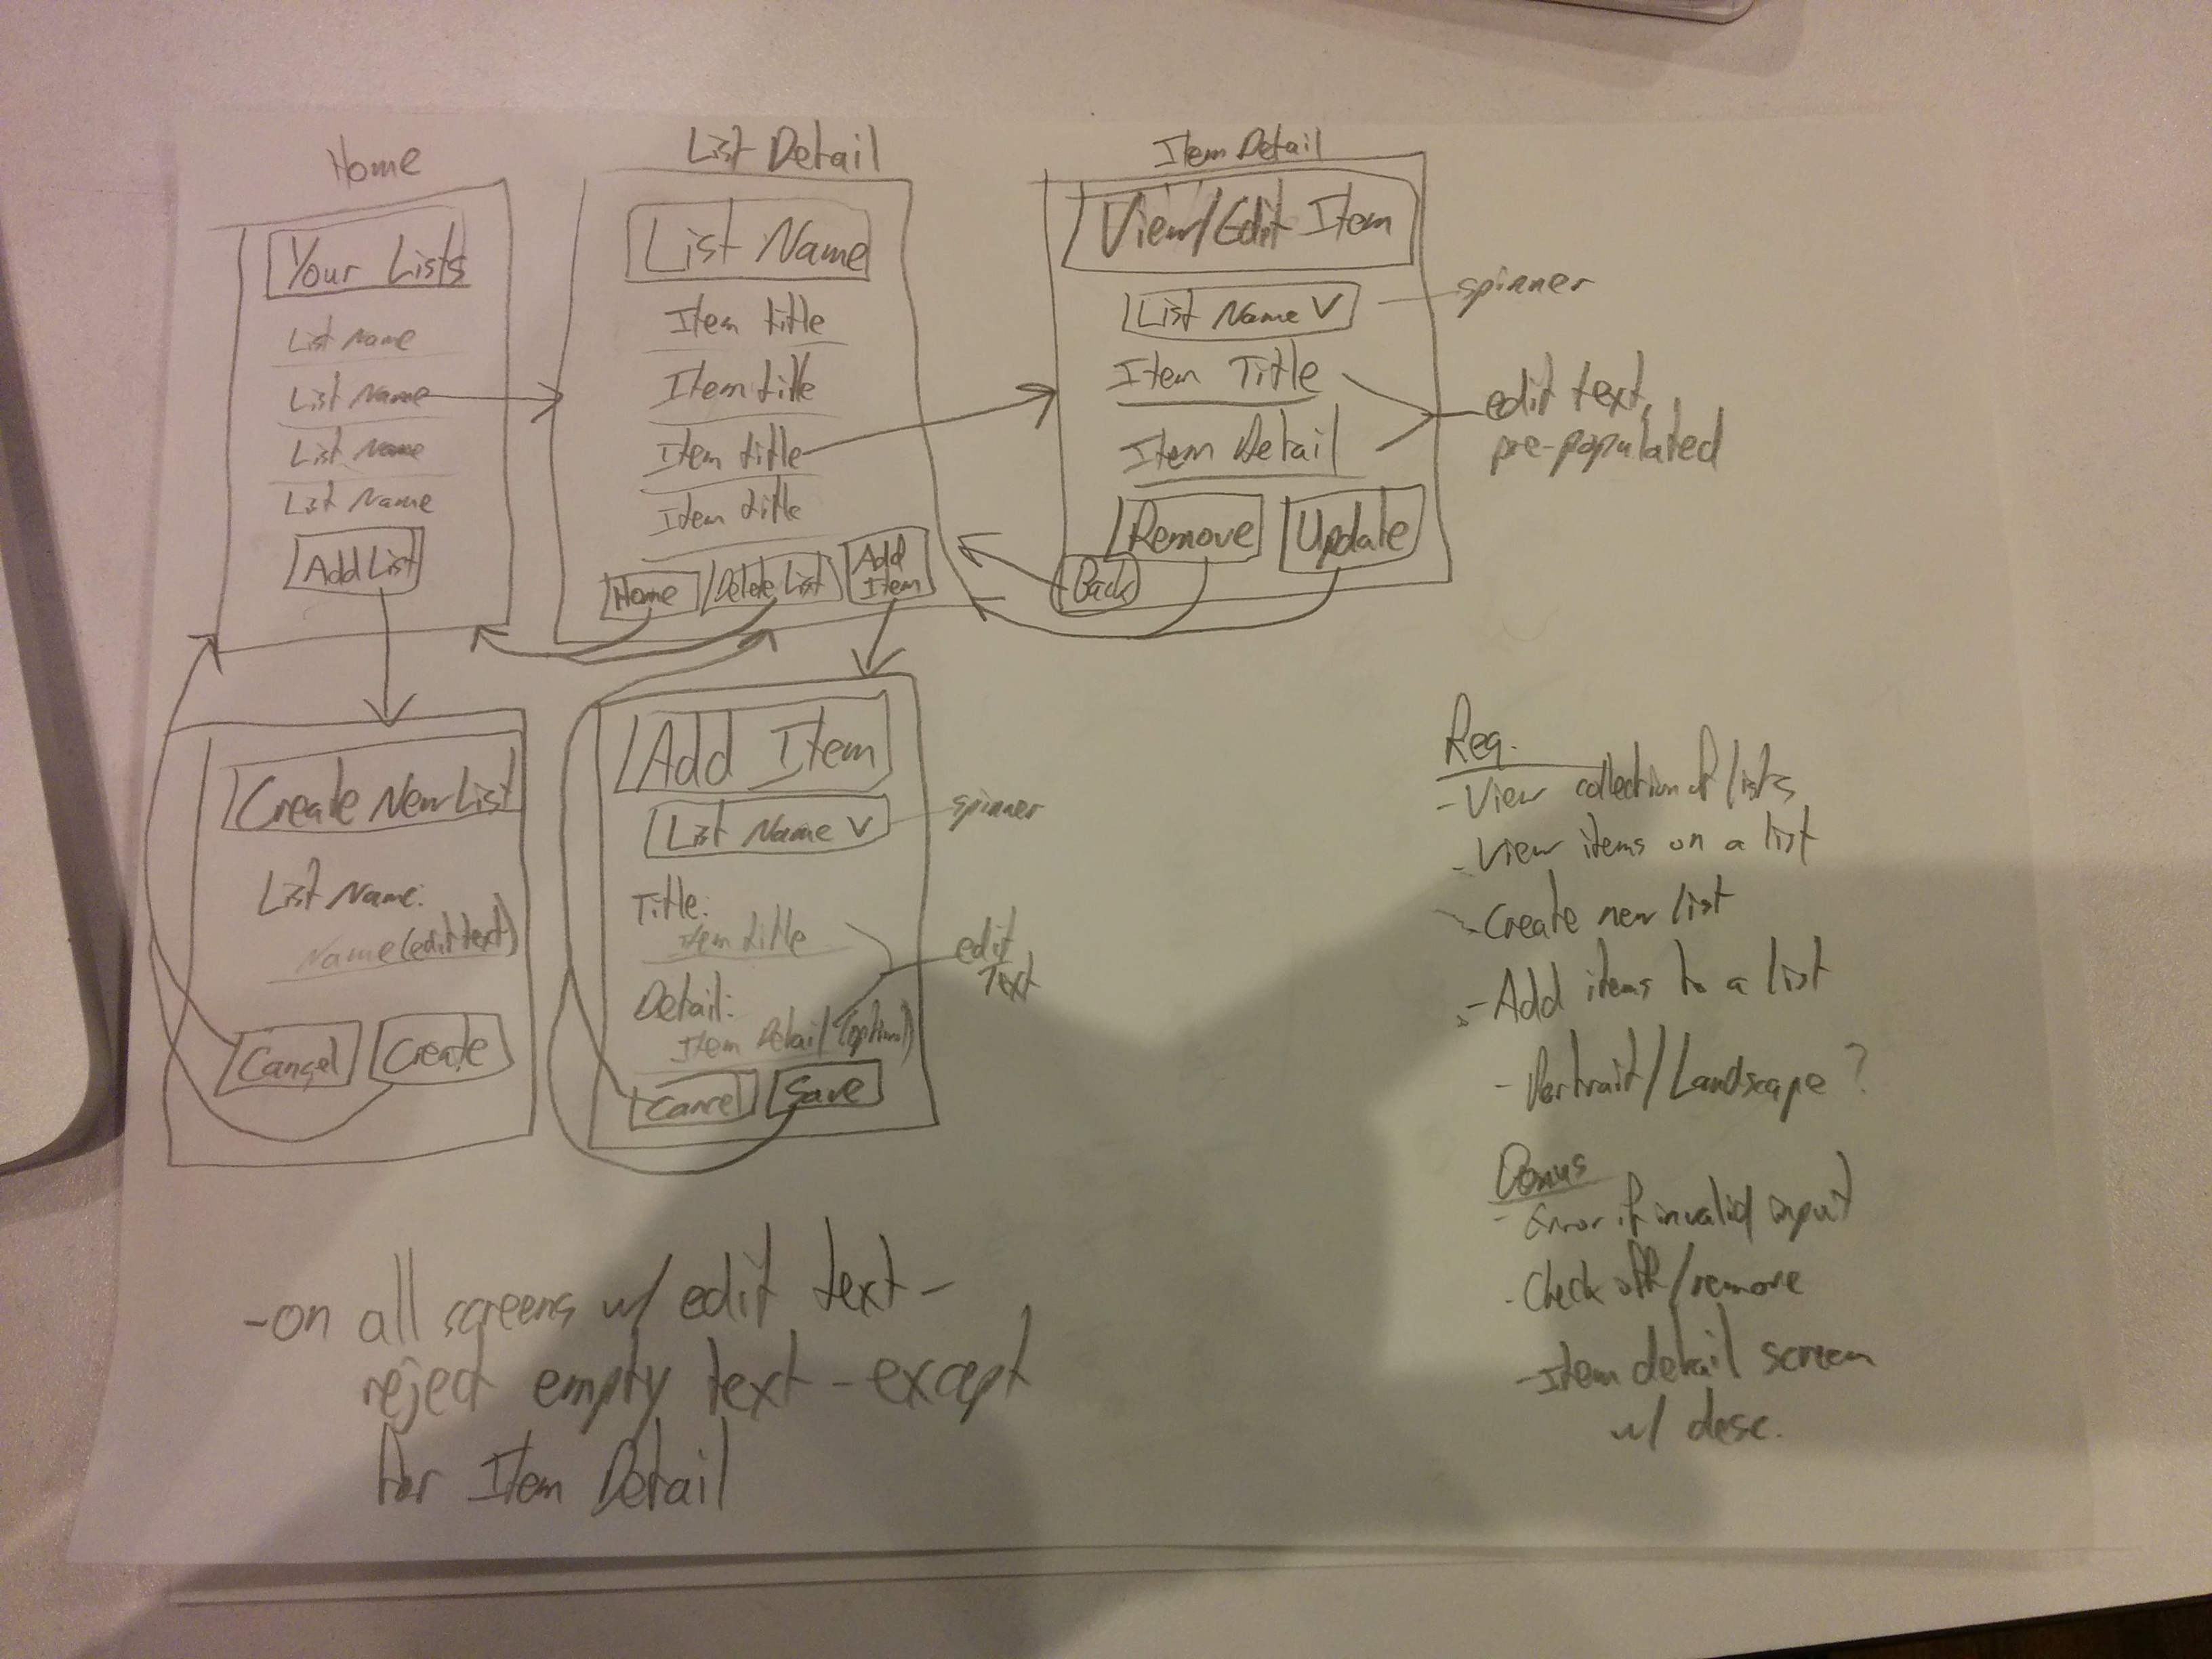 Home
Your Lists
List Name
List Name
List Name
List Name
Add List
List Detail
List Name
Item title
Item title
Item title
Item title
Home
Delete List
Add
Item
Item Detail
View/Edit Item
List Name V
spinner
Item Title
Item Detail
edit text,
pre-populated
Remove
Update
Back
Create New List
List Name:
Name (edit text)
Cancel
Create
Add Item
List Name V
spinner
Title:
Item title
Detail:
Item Detail (optional)
edit
Text
Cancel
Save
Req.
- View collection of lists
- View items on a list
- Create new list
- Add items to a list
- Portrait/Landscape ?
Bonus
- Error if invalid input
- Check off/remove
- Item detail screen
w/ desc.
- on all screens w/ edit text -
reject empty text - except
for Item Detail